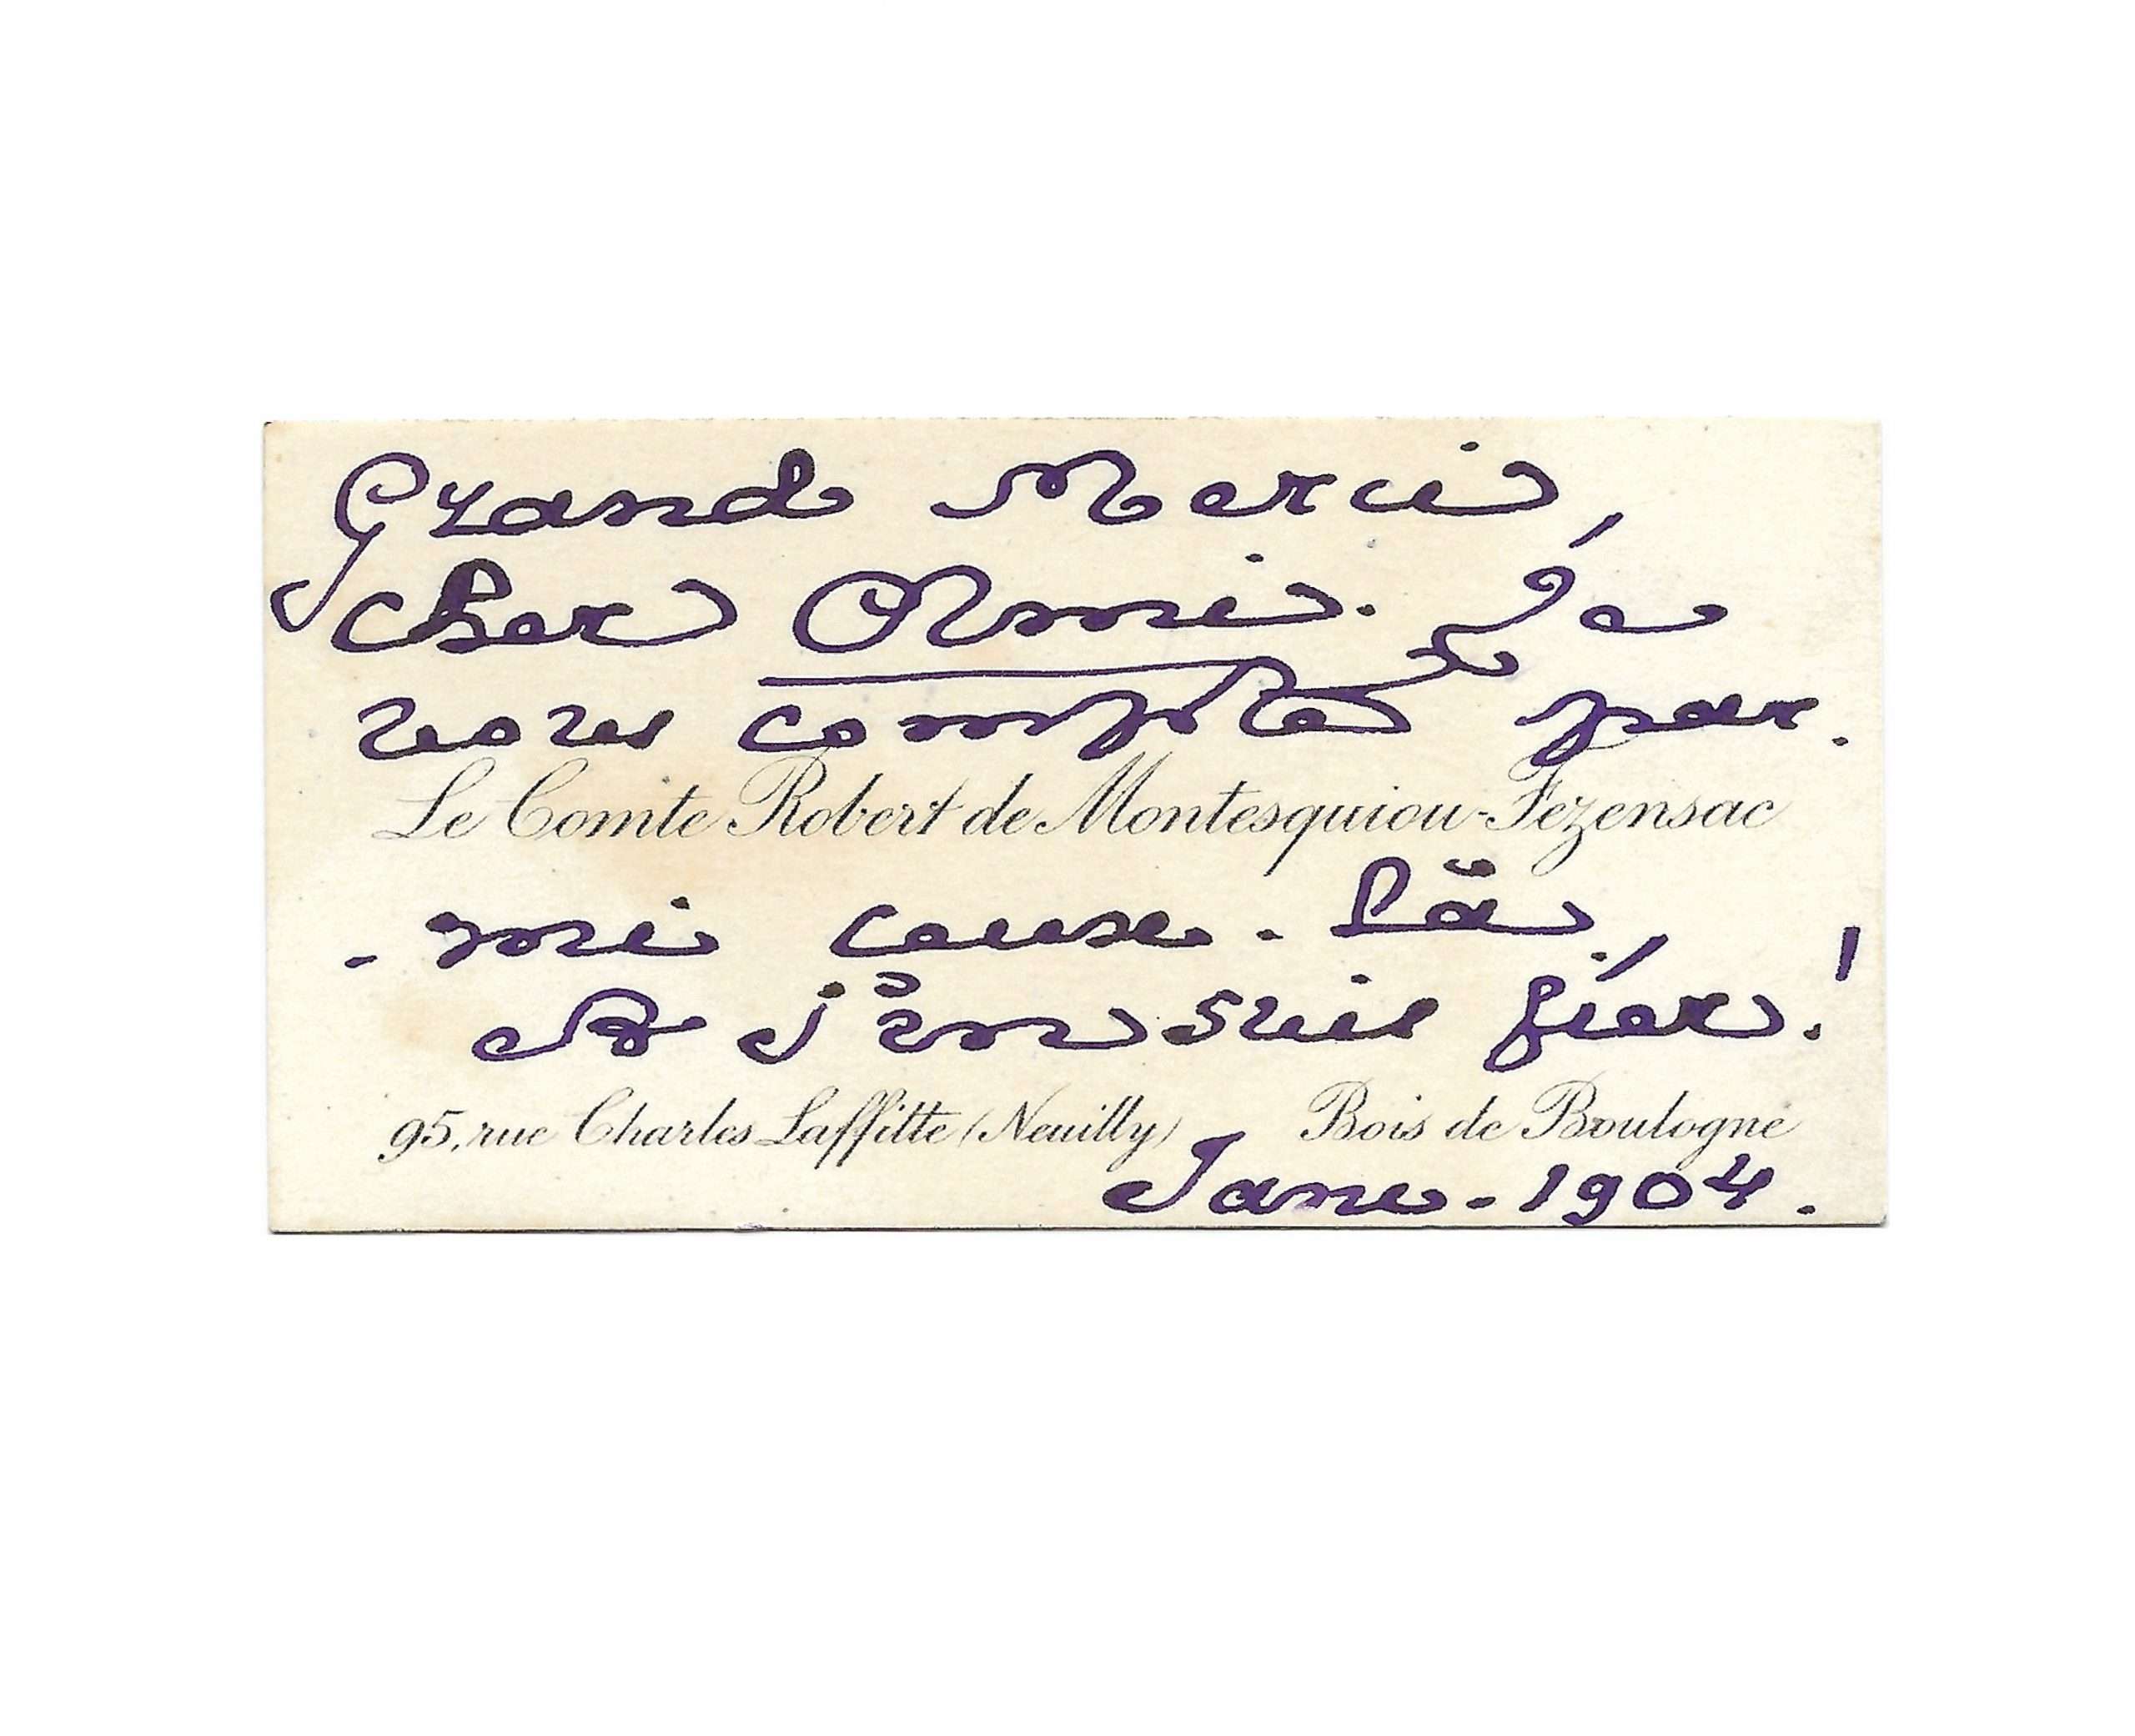 Grand Merci,
cher Ami. Je
vous compte par-
Le Comte Robert de Montesquiou-Fezensac
-mi ceux-là,
et j'en suis fier!
95, rue Charles Laffitte (Neuilly) Bois de Boulogne
Janv-1904.